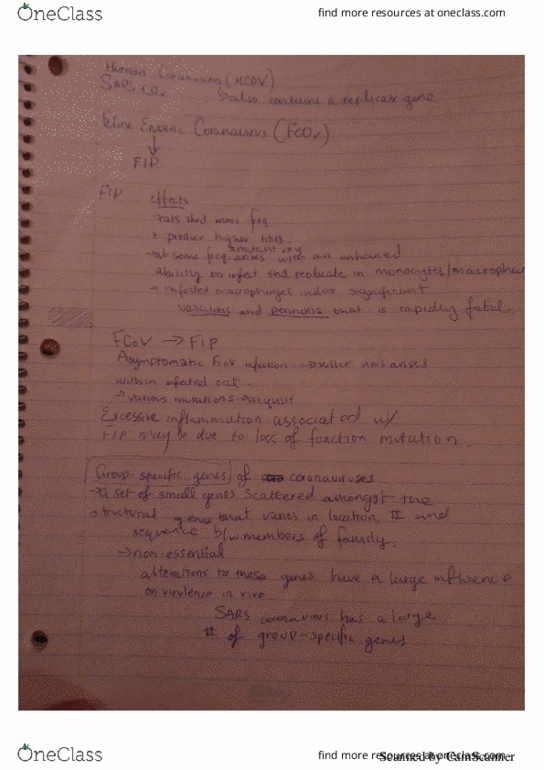 OneClass
find more resources at oneclass.com
Human Coronavirus (HCOV)
SARS COV
also contains a replicase gene
Feline Enteric Coronavirus (FCOV)
FIP
FIP effects
cats shed more freq
+ produce higher titres.
a mutant virus
at some freq. arises with an enhanced
ability to infect and replicate in monocytes/macrophag
→ infected macrophages induce significant
vasculitis and that is rapidly fatal.
FCOV → FIP
Asymptomatic FCOV infection → killer virus arises
within infected cat.
→ various mutations acquired
Excessive inflammation associated w/
FIP may be due to loss of function mutation.
Group specific genes of coronaviruses
→ a set of small genes scattered amongst the
structural genes that varies in location, # and
sequence b/w members of family.
→ non-essential
alterations to these genes have a large influence
on virulence in vivo
SARS coronavirus has a large
# of group-specific genes
OneClass
find more resources at oneclass.com
Scanned by CamScanner